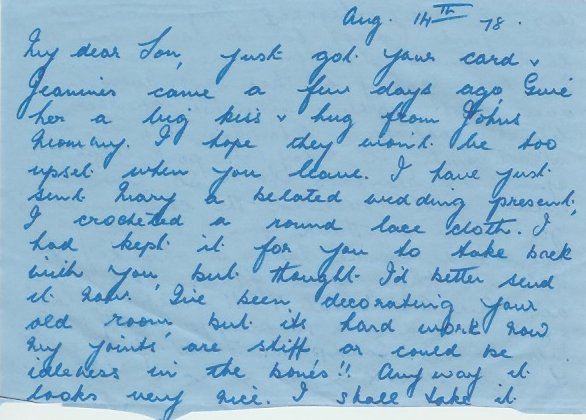 Aug. 14th 78.
My dear Son, just got your card &
Jeannies came a few days ago, Give
her a big kiss & hug from John's
Mommy. I hope they won't be too
upset when you leave. I have just
sent Mary a belated wedding present,
I crocheted a round lace cloth. I
had kept it for you to take back
with you, but thought I'd better send
it now. I've been decorating your
old room but its hard work now
my joints are stiff, or could be
idleness in the bones!! Anyway it
looks very nice. I shall take it